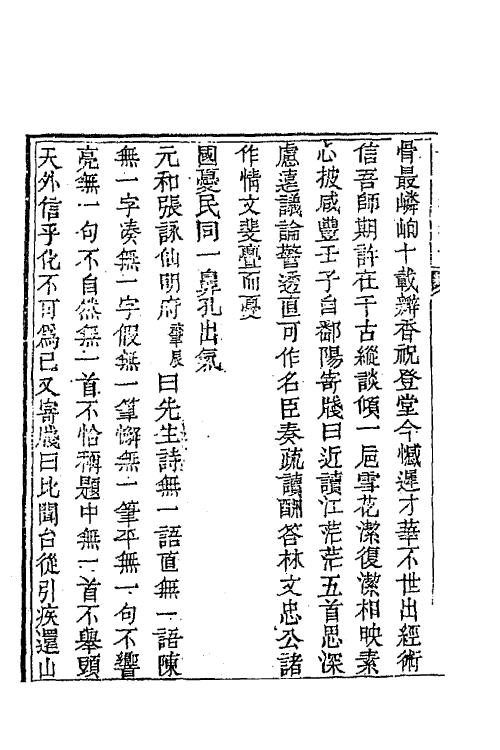 骨最嶙峋十載瓣香祝登堂今憾遲才華不世出經術
信吾師期許在千古縱談傾一巵雪花潔復潔相映素
心披咸豐壬子自鄱陽寄牋曰近讀江茫茫五首思深
慮遠議論警透直可作名臣奏疏讀酬答林文忠公諸
作情文斐亹而憂
國憂民同一鼻孔出氣
元和張詠仙明府肇辰曰先生詩無一語直無一語陳
無一字湊無一字假無一筆懈無一筆平無一句不響
亮無一句不自然無一首不恰稱題中無一首不舉頭
天外信乎化不可為已又寄牋曰比聞台從引疾還山